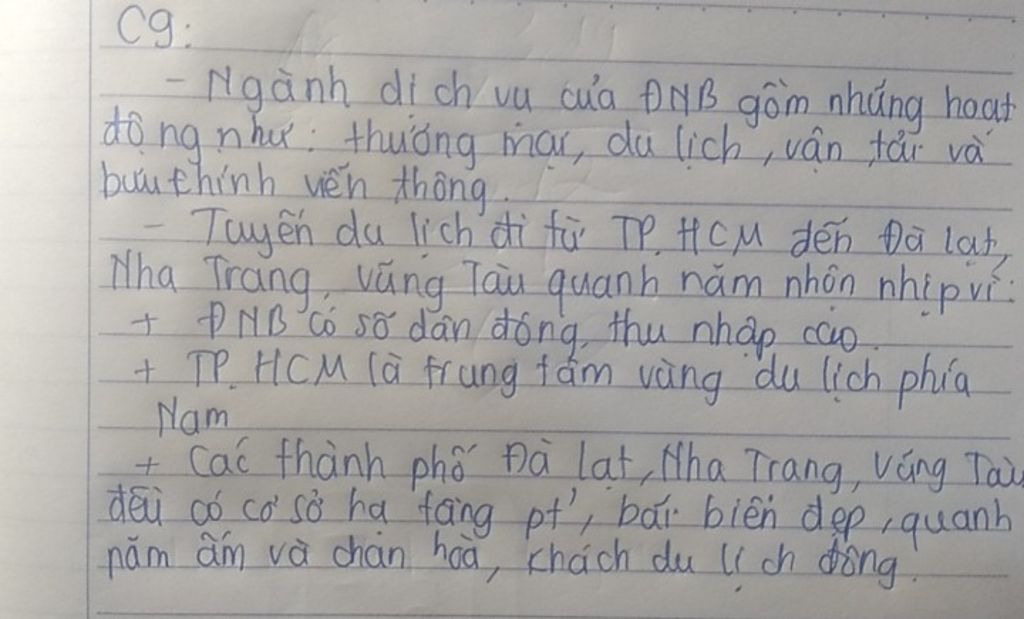 C9:
- Ngành dịch vụ của ĐNB gồm những hoạt
động như: thương mại, du lịch, vận tải và
bưu chính viễn thông.
- Tuyến du lịch đi từ TP. HCM đến Đà lạt,
Nha Trang, vũng Tàu quanh năm nhộn nhịp vì:
+ ĐNB có số dân đông, thu nhập cao.
+ TP. HCM là trung tâm vùng du lịch phía
Nam
+ Các thành phố Đà lạt, Nha Trang, Vũng Tàu
đều có cơ sở hạ tầng pt', bãi biển đẹp, quanh
năm ấm và chan hoà, khách du lịch đông.